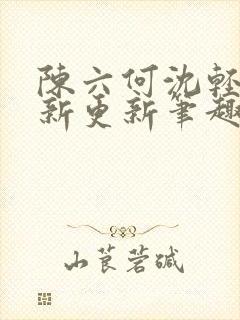 陳六何沈輕
新更新筆趣
山莨菪碱